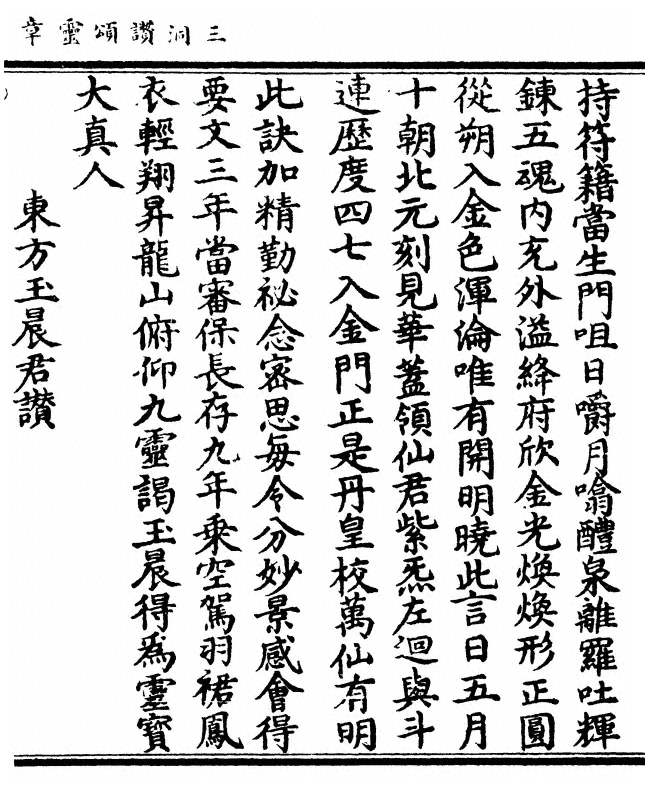 三洞讚頌靈章
持符籍當生門咀日嚼月噏醴泉離羅吐輝
鍊五魂內充外溢絳府欣金光煥煥形正圓
從朔入金色渾淪唯有開明曉此言日五月
十朝北元刻見華蓋領仙君紫炁左迴與斗
連歷度四七入金門正是丹皇校萬仙有明
此訣加精勤祕念密思每令分妙景感會得
要文三年當審保長存九年乘空駕羽裙鳳
衣輕翔昇龍山俯仰九靈謁玉晨得為靈寶
大真人
東方玉晨君讚